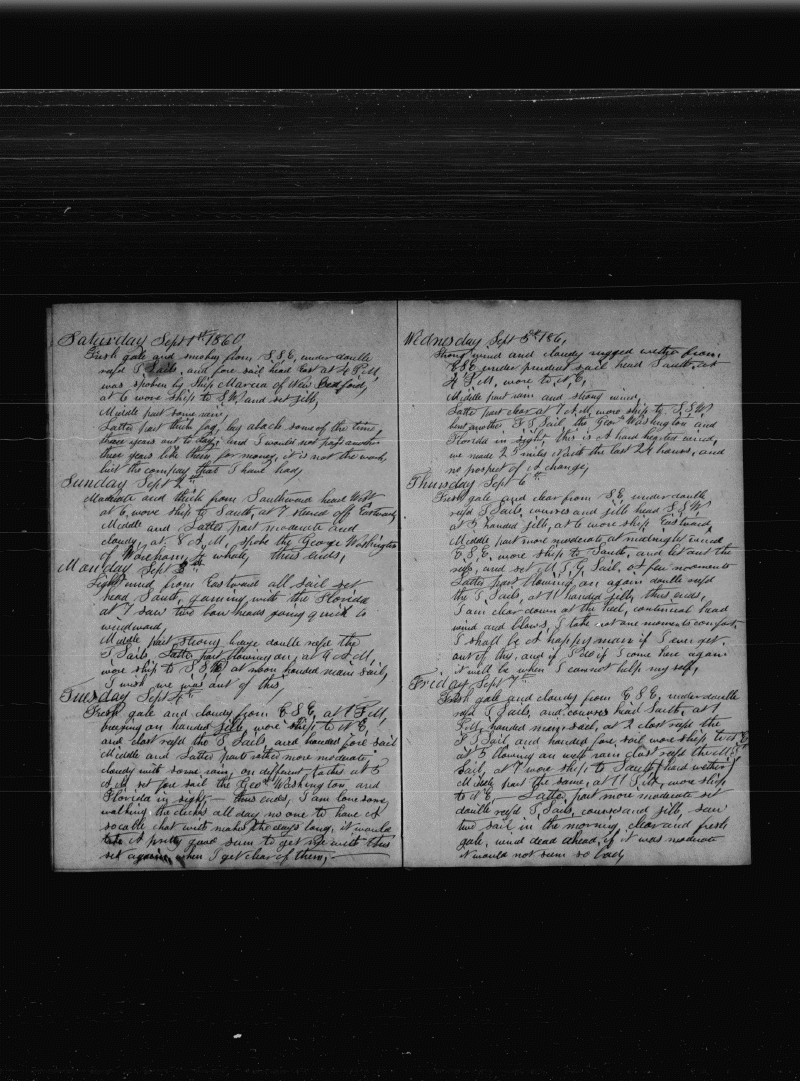 Saturday Sept 1st 1860
Fresh gale and smokey from S.S.E. under double
refd T Sails, and fore sail head East at 4 P.M.
was spoken by Ship Marcia of New Bedford,
at 6 wore ship to S.W. and set jibb,
Middle part some rain,
Latter part thick fog, lay aback some of the time,
three years out to day, and I would not pass another
three years like them for money, it is not the work
but the compay that I have had,
Sunday Sept 2nd
Moderate and thick from Southward head West
at 6, wore ship to South, at 7 steared off Eastward
Middle and Latter part moderate and
cloudy, at 8 A.M. spoke the George Washington
of Wareham, whale, thus ends,
Monday Sept 3rd
Light wind from Eastward all sail set
head South, gamming with the Florida
at 7 saw two bow heads going quick to
windward,
Middle part strong breeze double refd the
T Sails, Latter part blowing on, at 4 A.M.
wore ship to at noon handed main sail,
I wish we was out of this
Tuesday Sept 4th
Fresh gale and cloudy from E.S.E. at 1 P.M.
breezing on handed jibb, wore ship to N.E.
and clost refd the T Sails, and handed fore sail
Middle and Latter part rather more moderate
cloudy with some rain, on different tacks at 5
A.M. set fore sail the Geo Washington and
Florida in sight,— thus ends, I am lonesome,
walking the decks all day no one to have A
sociable chat with makes the days long, it would
take A pretty good sum to get me with this
set again, when I get clear of them,—
Wednesday Sept 5th 186
Strong wind and cloudy rugged wether from
E.S.E. under head South, at
4 P.M. wore to N.E,
Middle part rain and strong wind,
Latter part clear at 1 A.M. wore ship to S.S.W
bent another T Sail, the Geo Washington and
Florida in sight, this is A hard hearted wind,
we made 25 miles North the last 24 hours, and
no prospect of A change,
Thursday Sept 6th
Fresh gale and clear from S.E. under double
refd T Sails, courses and jibb head S.S.W
at 5 handed jibb, at 6 wore ship Eastward,
Middle part more moderate at midnight wind
E.S.E. wore ship to South, and let out the
refs, and set M.T.G. Sail, A few moments
Latter part blowing on again double refd
the T Sails, at 11 handed jibb, thus ends,
I am clar down at the heel, continual head
wind and blows, I take not one moments comfort,
I shall be A happy man if I ever get
out of this, and if I do if I come here again
it will be when I cannot help my self,
Friday Sept 7th
Fresh gale and cloudy from E.S.E. under double
refd T Sails, and courses head South, at 1
P.M. handed main sail, at 2 clost refd the
T Sail and handed fore sail wore ship to N.E
at 5 blowing on with rain clost refd the M.T
Sail, at 7 wore ship to South, hard wether
Middle part the same, at 11 P.M. wore ship
to N.E.— Latter part more moderate set
double refd T Sails, courses and jibb, saw
two sail in the morning, clear and fresh
gale, wind dead ahead, if it was moderate
it would not seem so bad,